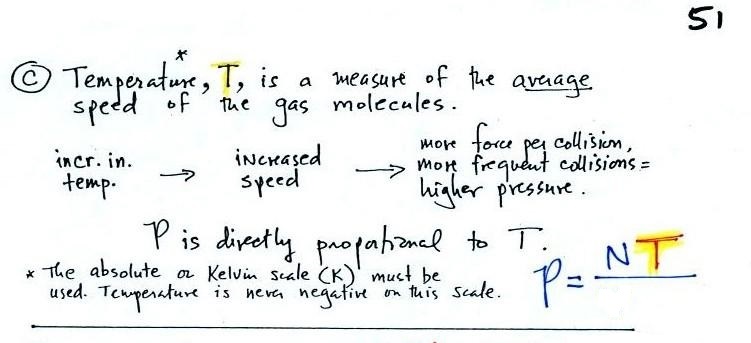 51
*
© Temperature, T, is a measure of the average
speed of the gas molecules.
incr. in. temp. → increased speed → more force per collision,
more frequent collisions =
higher pressure.
P is directly proportional to T.
* The absolute or Kelvin scale (K) must be
used. Temperature is never negative on this scale.
P = NT